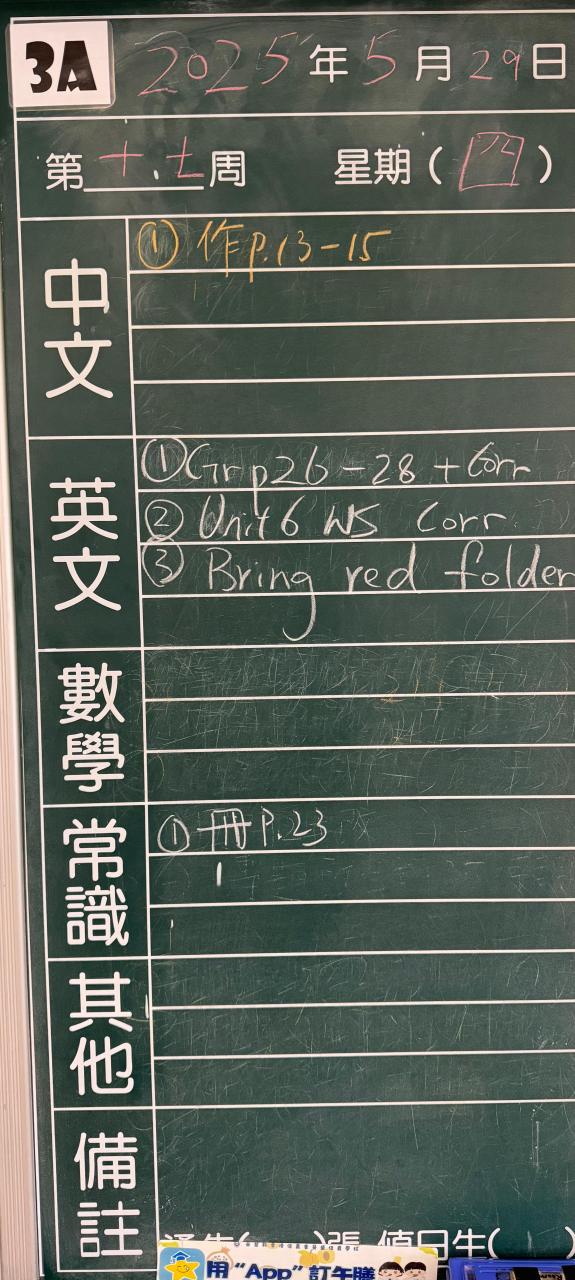 3A 2025年5月29日
第十七周 星期(四)
中文
① 作P.13-15
英文
① Gr p26-28 + Corr
② Unit 6 WS Corr
③ Bring red folder
數學
常識
① 冊P.23
其他
備註
張 值日生( )
用 "App" 訂午膳